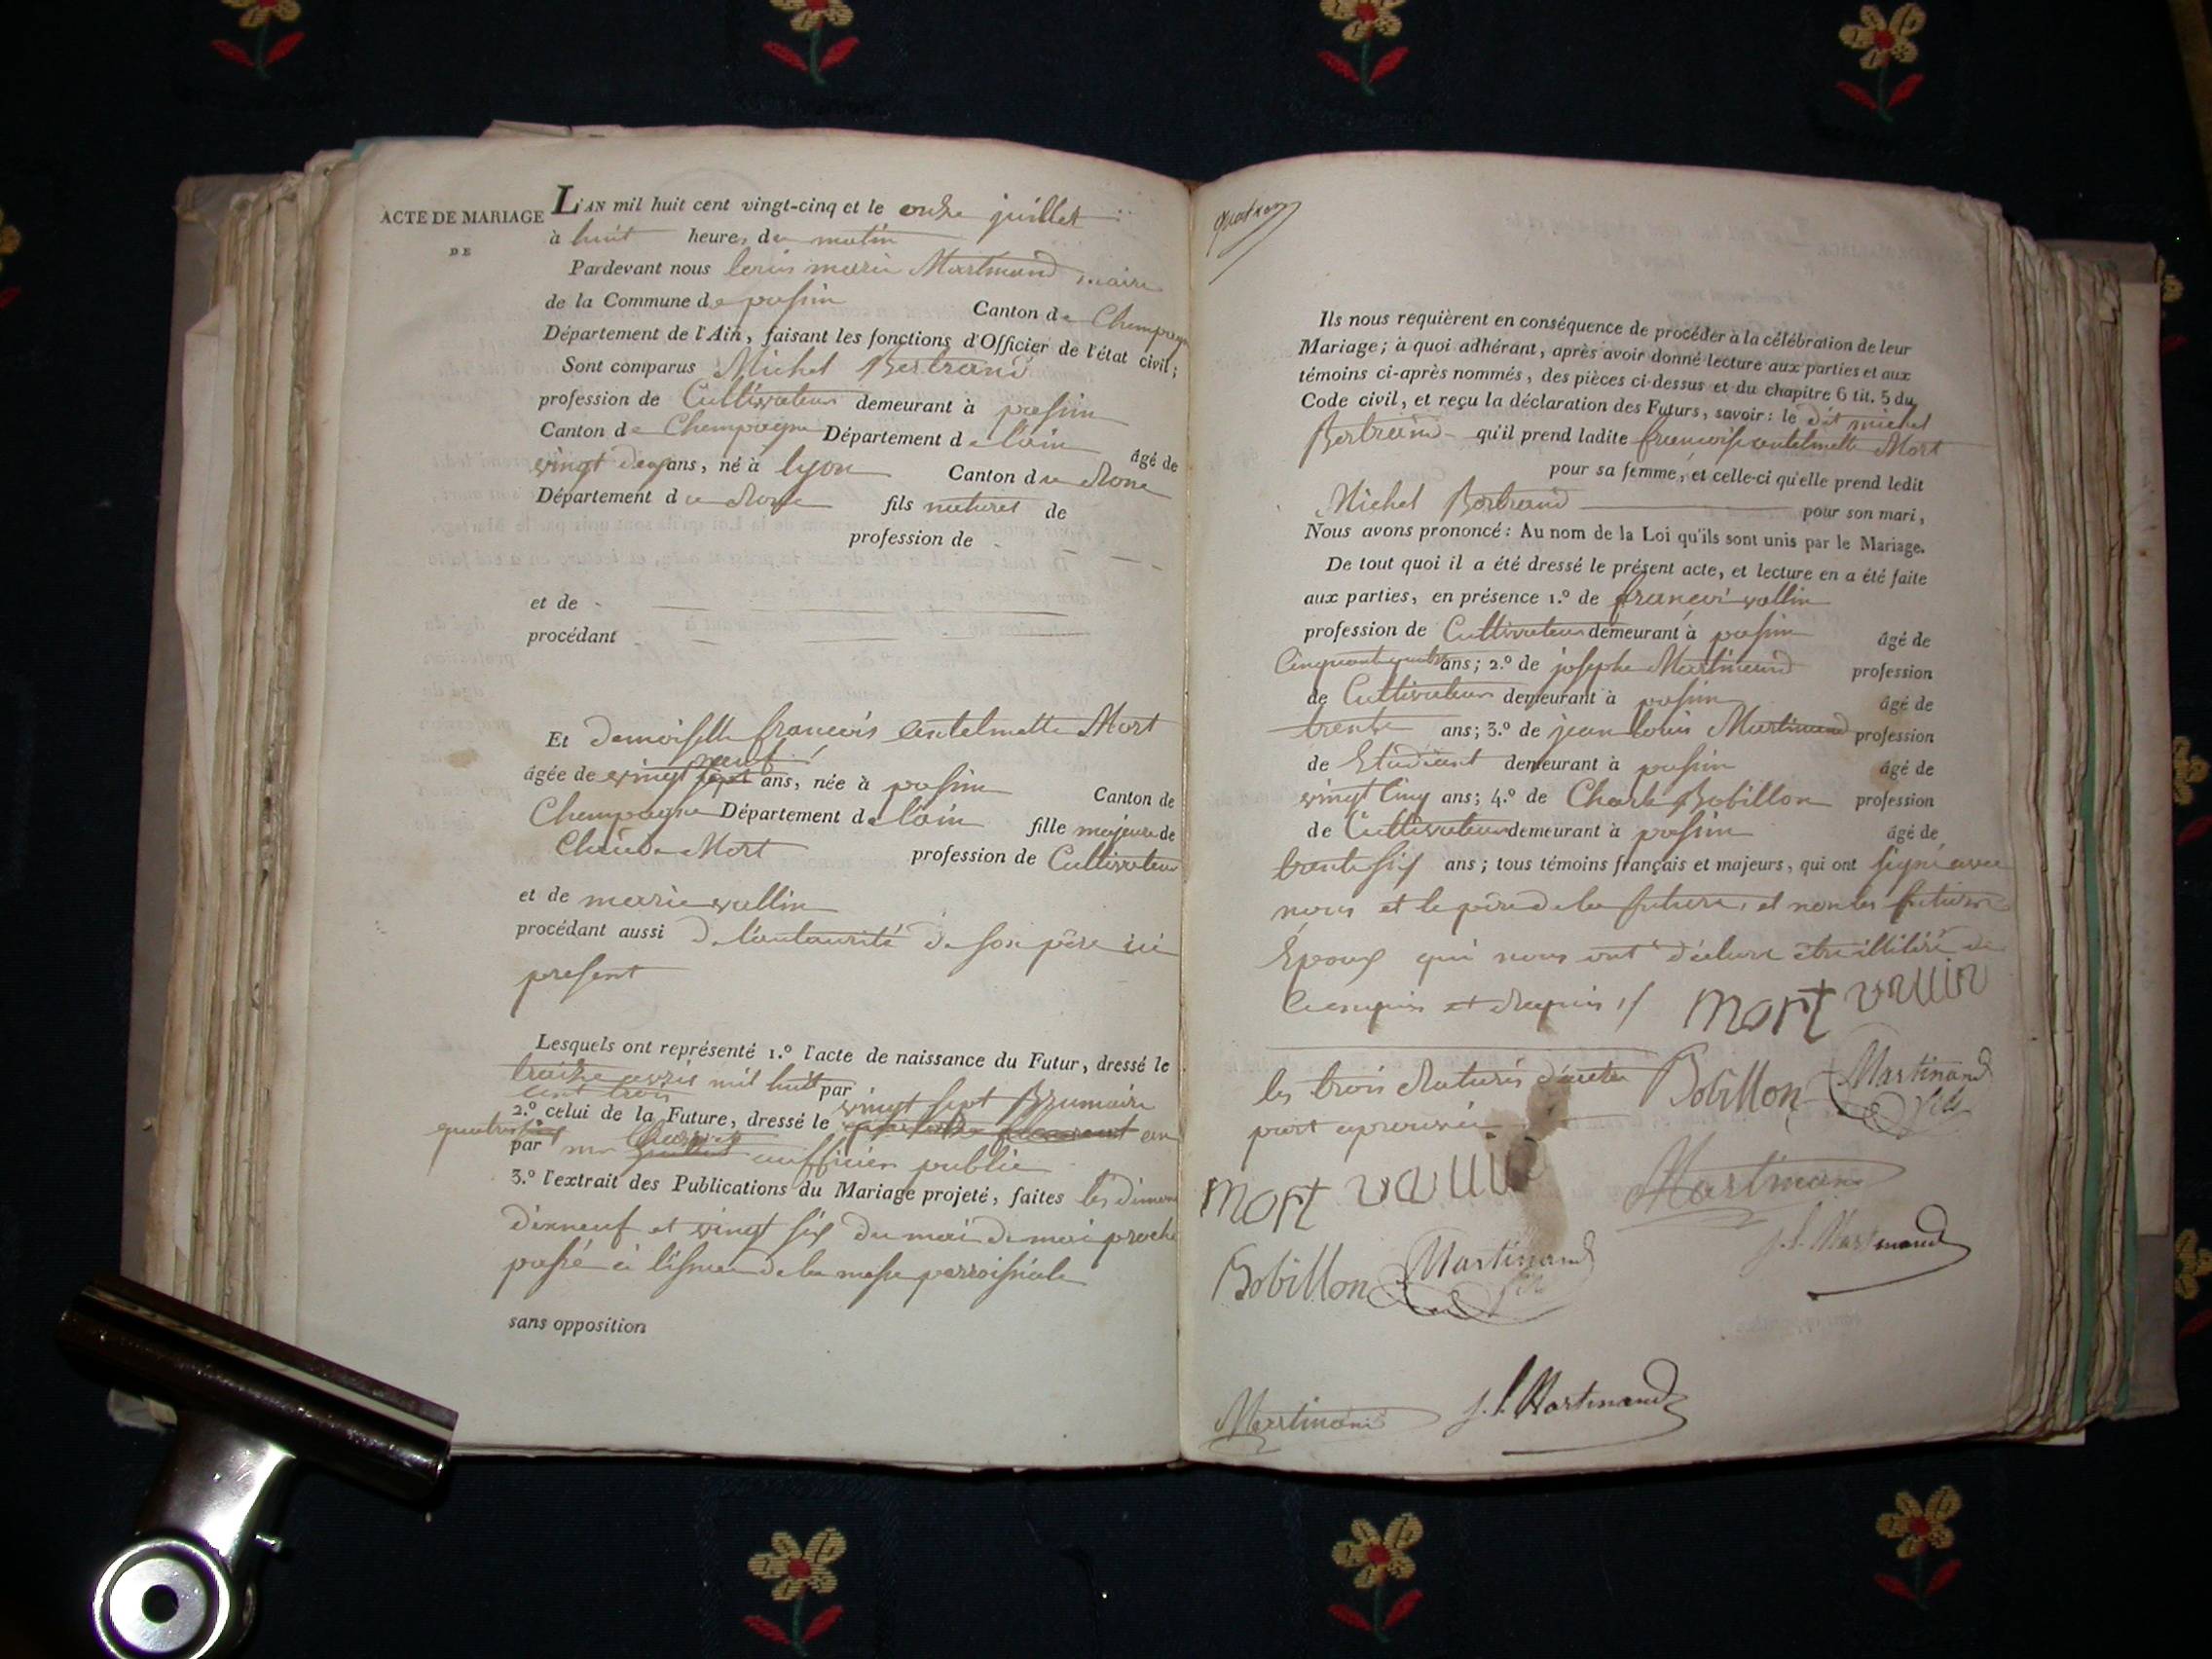 ACTE DE MARIAGE
DE
L'AN mil huit cent vingt-cinq et le onze juillet
à huit heures du matin
Pardevant nous louis marie Martinand maire
de la Commune de passin Canton de Champagne
Département de l'Ain, faisant les fonctions d'Officier de l'état civil;
Sont comparus Michel Bertrand
profession de Cultivateur demeurant à passin
Canton de Champagne Département de l'ain âgé de
vingt deux ans, né à lyon Canton du Rone
Département du Rone fils naturel de
profession de
et de
procédant
Et demoiselle francois antelmette Mort
neuf
âgée de vingt sept ans, née à passin Canton de
Champagne Département de l'ain fille majeure de
Claude Mort profession de Cultivateur
et de marie vallin
procédant aussi de l'autaurité de son père ici
present
Lesquels ont représenté 1.º l'acte de naissance du Futur, dressé le
traize avril mil huit par
cent trois
2.º celui de la Future, dressé le vingt sept Brumaire
an quatre
par mr aufficier public
3.º l'extrait des Publications du Mariage projeté, faites les diman
dixneuf et vingt six du moi de mai proche
passé à l'issue de la messe parroissiale
sans opposition
Ils nous requièrent en conséquence de procéder à la célébration de leur
Mariage; à quoi adhérant, après avoir donné lecture aux parties et aux
témoins ci-après nommés, des pièces ci-dessus et du chapitre 6 tit. 5 du
Code civil, et reçu la déclaration des Futurs, savoir: le dit michel
Bertrand qu'il prend ladite francoise antelmette Mort
pour sa femme, et celle-ci qu'elle prend ledit
Michel Bertrand pour son mari,
Nous avons prononcé: Au nom de la Loi qu'ils sont unis par le Mariage.
De tout quoi il a été dressé le présent acte, et lecture en a été faite
aux parties, en présence 1.º de francoi vallin
profession de Cultivateur demeurant à passin âgé de
Cinquant quatre ans; 2.º de josephe Martinand profession
de Cultivateur demeurant à passin âgé de
trente ans; 3.º de jean louis Martinand profession
de Etudiant demeurant à passin âgé de
vingt Cinq ans; 4.º de Charle Bobillon profession
de Cultivateur demeurant à passin âgé de
trente six ans; tous témoins français et majeurs, qui ont signé avec
nous et le père de la future, et non les future
Epoux qui nous ont déclaré être illitiré de
ce enquis et requis
mort vallin
les trois Raturés d'autre
part aprouvé
Bobillon Martinand
mort vallin
Martinand
j. l. Martinand
Bobillon Martinand
Martinand j. l. Martinand